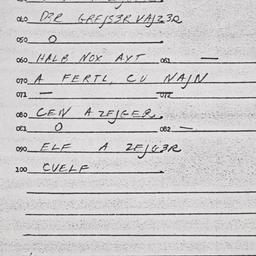 040 D3R GREJS3R VAJZ3R
050 O
060 HALB NOX AYT 061 —
070 A FERTL, CU NAJN
071 — 072 —
080 CEN A ZEJGER
081 O 082 —
090 ELF A ZEJG3R
100 CVELF